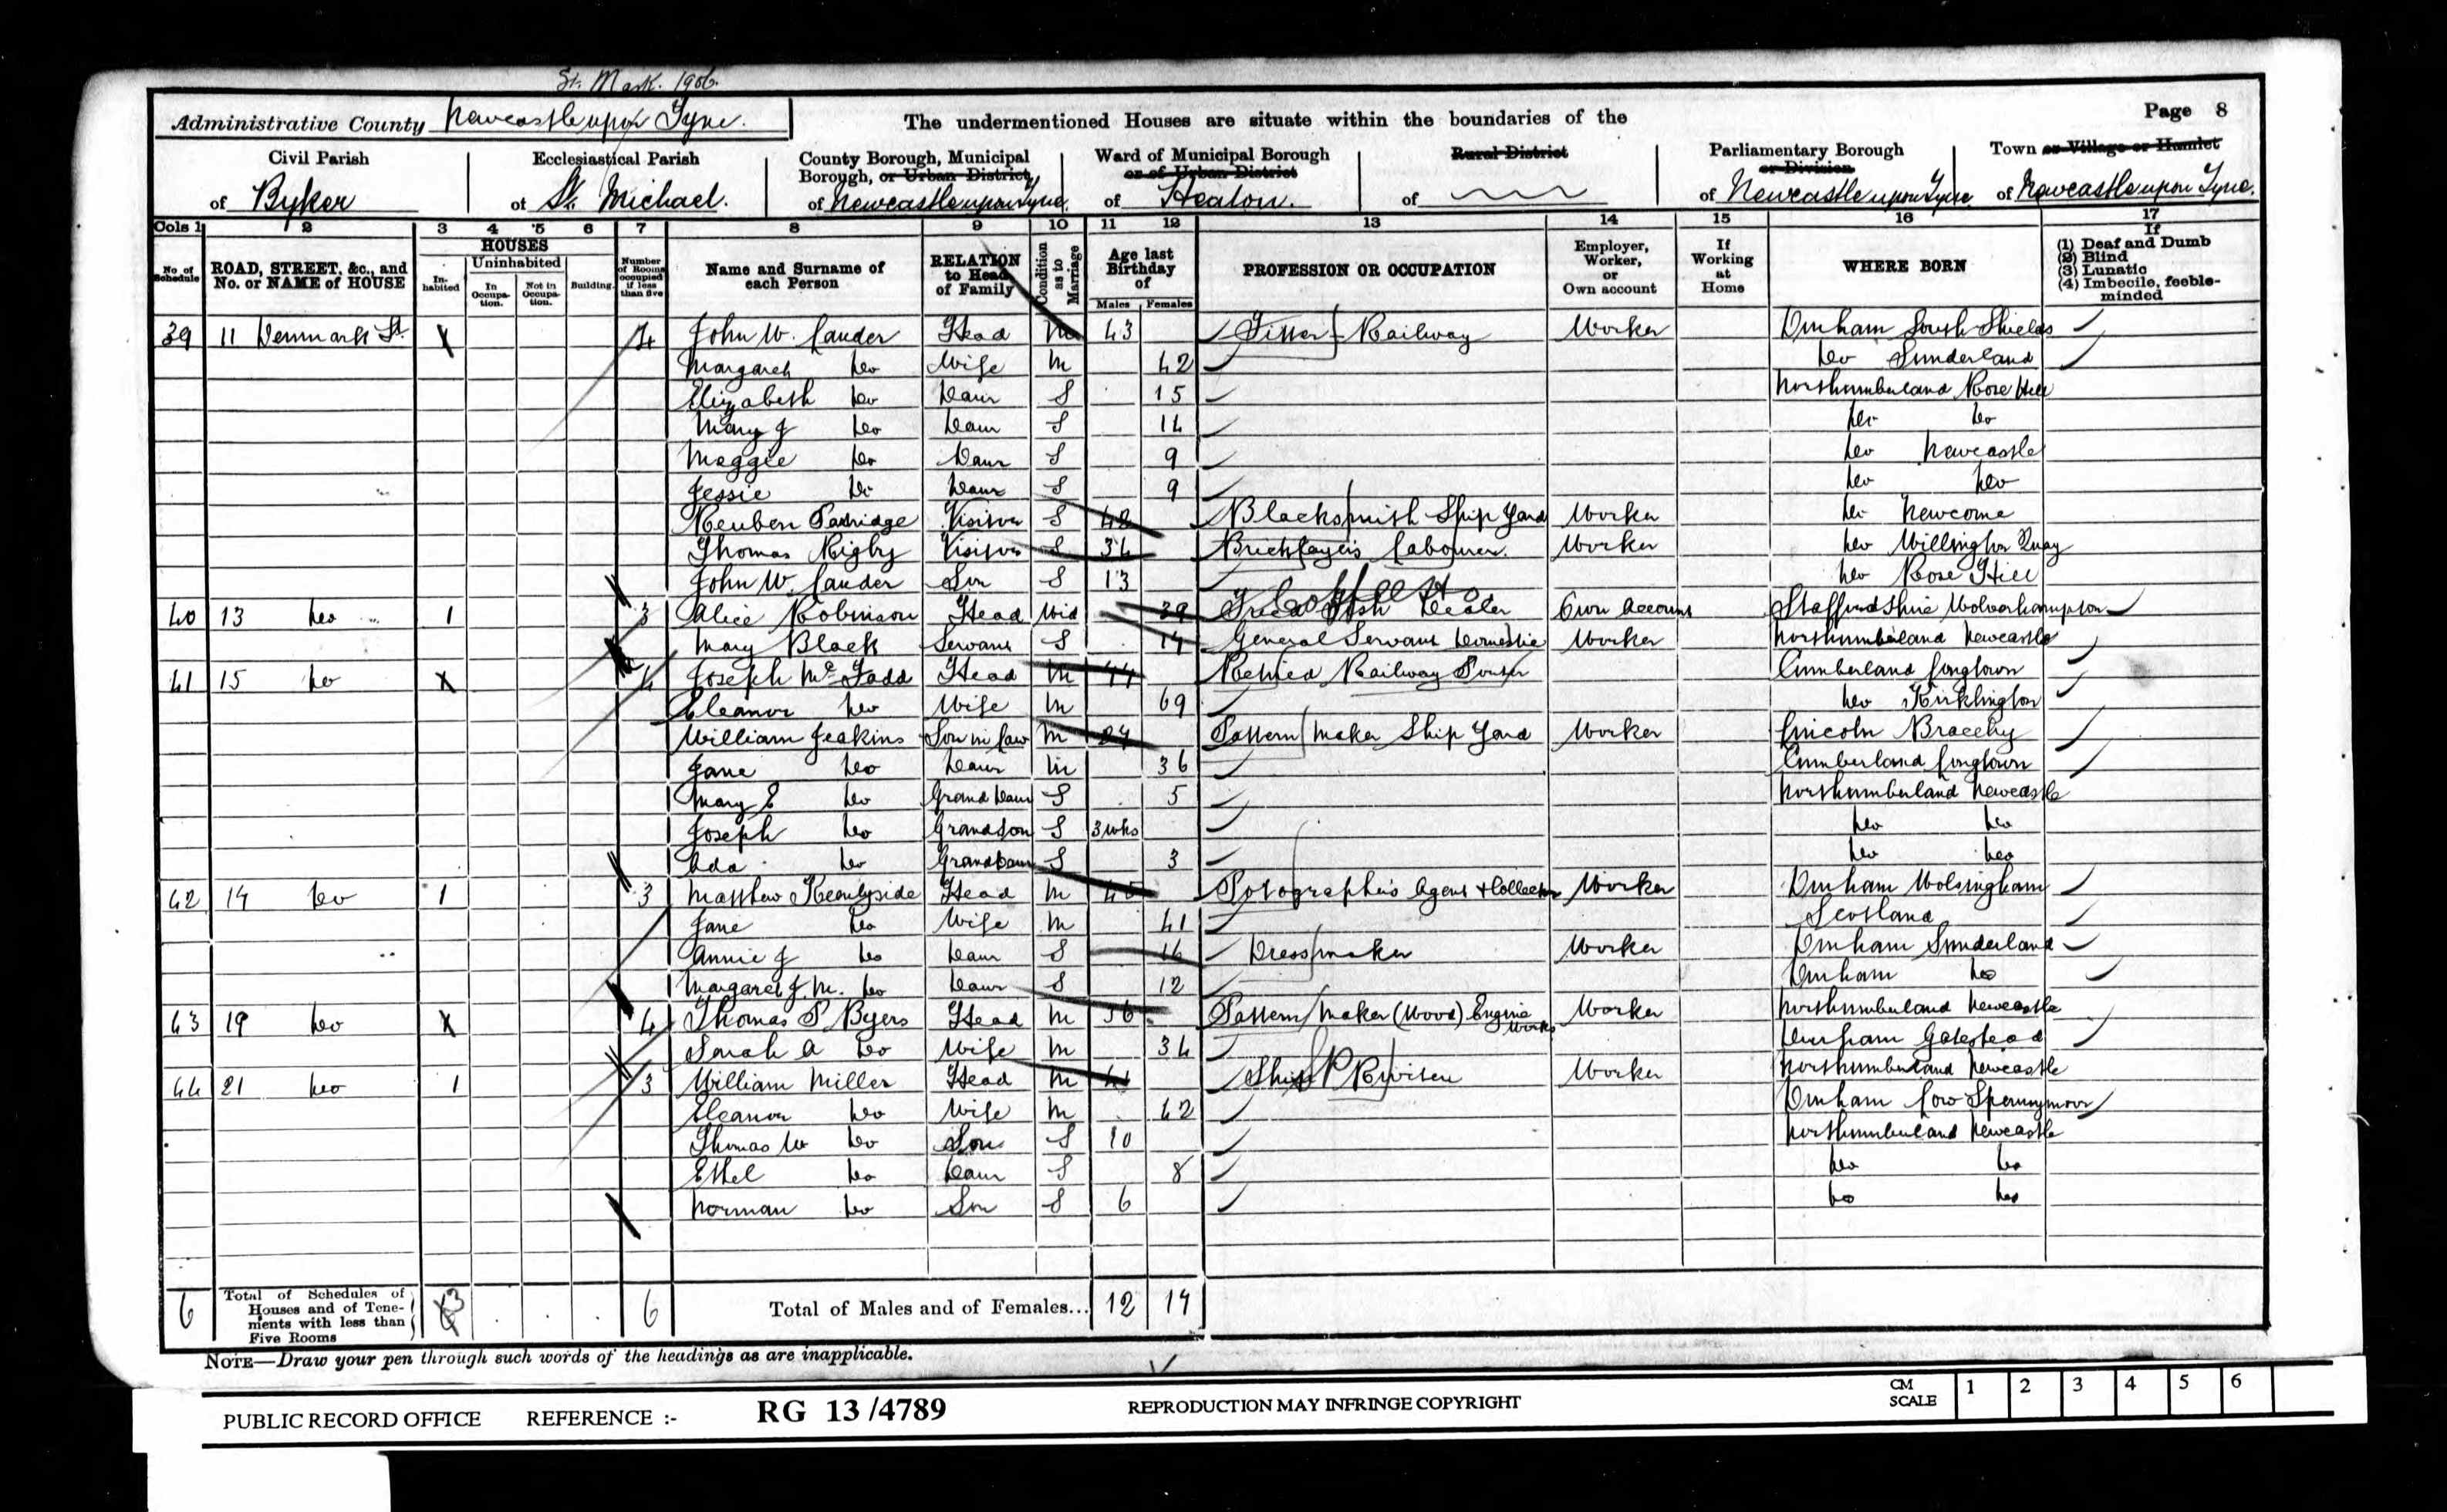 St. Mark. 1906.
Administrative County Newcastle upon Tyne.
The undermentioned Houses are situate within the boundaries of the
Page 8
Civil Parish of Byker
Ecclesiastical Parish of St. Michael.
County Borough, Municipal Borough, or Urban District, of Newcastle upon Tyne.
Ward of Municipal Borough or of Urban District of Heaton.
Rural District of
Parliamentary Borough or Division of Newcastle upon Tyne
Town or Village or Hamlet of Newcastle upon Tyne.
Cols 1 2 3 4 5 6 7 8 9 10 11 12 13 14 15 16 17
No of Schedule
ROAD, STREET, &c., and No. or NAME of HOUSE
HOUSES
Inhabited
Uninhabited
In Occupation.
Not in Occupation.
Building.
Number of Rooms occupied if less than five
Name and Surname of each Person
RELATION to Head of Family
Condition as to Marriage
Age last Birthday of
Males Females
PROFESSION OR OCCUPATION
Employer, Worker, or Own account
If Working at Home
WHERE BORN
If
(1) Deaf and Dumb
(2) Blind
(3) Lunatic
(4) Imbecile, feeble-minded
39 11 Denmark St. X 4 John W. Lauder Head M 43 Fitter Railway Worker Durham South Shields
Margaret Do Wife M 42 Do Sunderland
Elizabeth Do Daur S 15 Northumberland Rose Hill
Mary J Do Daur S 14 Do Do
Maggie Do Daur S 9 Do Newcastle
Jessie Do Daur S 9 Do Do
Reuben Partridge Visitor S 42 Blacksmith Ship Yard Worker Do Newcome
Thomas Rigby Visitor S 34 Bricklayer's Labourer. Worker Do Willington Quay
John W. Lauder Son S 13 Do Rose Hill
40 13 Do 1 3 Alice Robinson Head Wid 39 Fried Fish Dealer Own Account Staffordshire Wolverhampton
Mary Black Servant S General Servant Domestic Worker Northumberland Newcastle
41 15 Do X 4 Joseph McFadd Head M Retired Railway Porter Cumberland Longtown
Eleanor Do Wife M 69 Do Kirklington
William Jeakins Son in law M Pattern Maker Ship Yard Worker Lincoln
Jane Do Daur M 36 Cumberland Longtown
Mary E Do Grand Daur S 5 Northumberland Newcastle
Joseph Do Grandson S 3 wks Do Do
Ada Do Grandaur S 3 Do Do
42 17 Do 1 3 Matthew Keenlyside Head M 45 Potographer's Agent & Collector Worker Durham Wolsingham
Jane Do Wife M 41 Scotland
Annie J Do Daur S 16 Dressmaker Worker Durham Sunderland
Margaret J. M. Do Daur S 12 Durham Do
43 19 Do X 4 Thomas P Byers Head M 36 Pattern Maker (Wood) Engine Works Worker Northumberland Newcastle
Sarah A Do Wife M 34 Durham Gateshead
44 21 Do 1 3 William Miller Head M 41 Ship Riviter Worker Northumberland Newcastle
Eleanor Do Wife M 42 Durham Low Spennymoor
Thomas W Do Son S 10 Northumberland Newcastle
Ethel Do Daur S 8 Do Do
Norman Do Son S 6 Do Do
6 Total of Schedules of Houses and of Tenements with less than Five Rooms 3 6 Total of Males and of Females... 12 17
NOTE—Draw your pen through such words of the headings as are inapplicable.
PUBLIC RECORD OFFICE REFERENCE :- RG 13/4789 REPRODUCTION MAY INFRINGE COPYRIGHT
CM SCALE 1 2 3 4 5 6